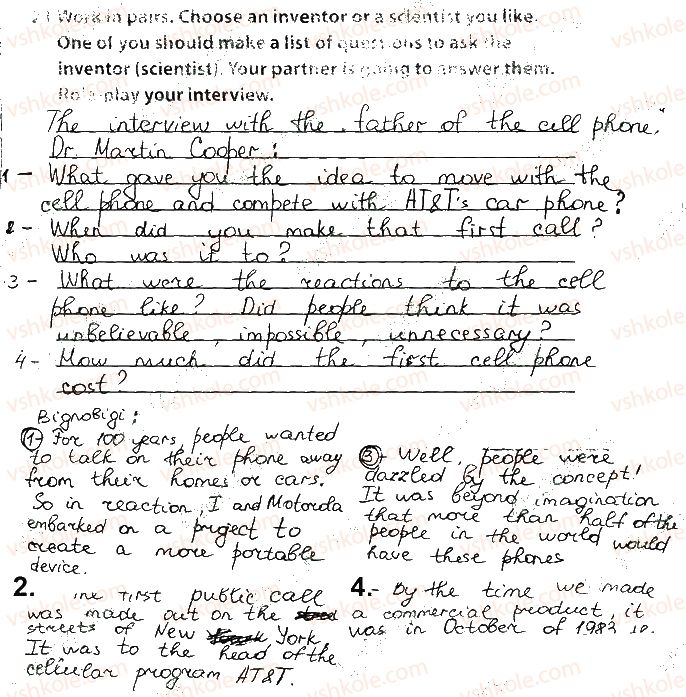 2 Work in pairs. Choose an inventor or a scientist you like.
One of you should make a list of questions to ask the
inventor (scientist). Your partner is going to answer them.
Role-play your interview.
The interview with the "father of the cell phone,"
Dr. Martin Cooper:
1 - What gave you the idea to move with the
cell phone and compete with AT&T's car phone?
2 - When did you make that first call?
Who was it to?
3 - What were the reactions to the cell
phone like? Did people think it was
unbelievable, impossible, unnecessary?
4 - How much did the first cell phone
cost?
Відповіді:
1 - For 100 years, people wanted
to talk on their phone away
from their homes or cars.
So in reaction, I and Motorola
embarked on a project to
create a more portable
device.
2. The first public call
was made out on the
streets of New York
It was to the head of the
cellular program AT&T.
3 - Well, people were
dazzled by the concept!
It was beyond imagination
that more than half of the
people in the world would
have these phones
4. - By the time we made
a commercial product, it
was in October of 1983
vshkole.com